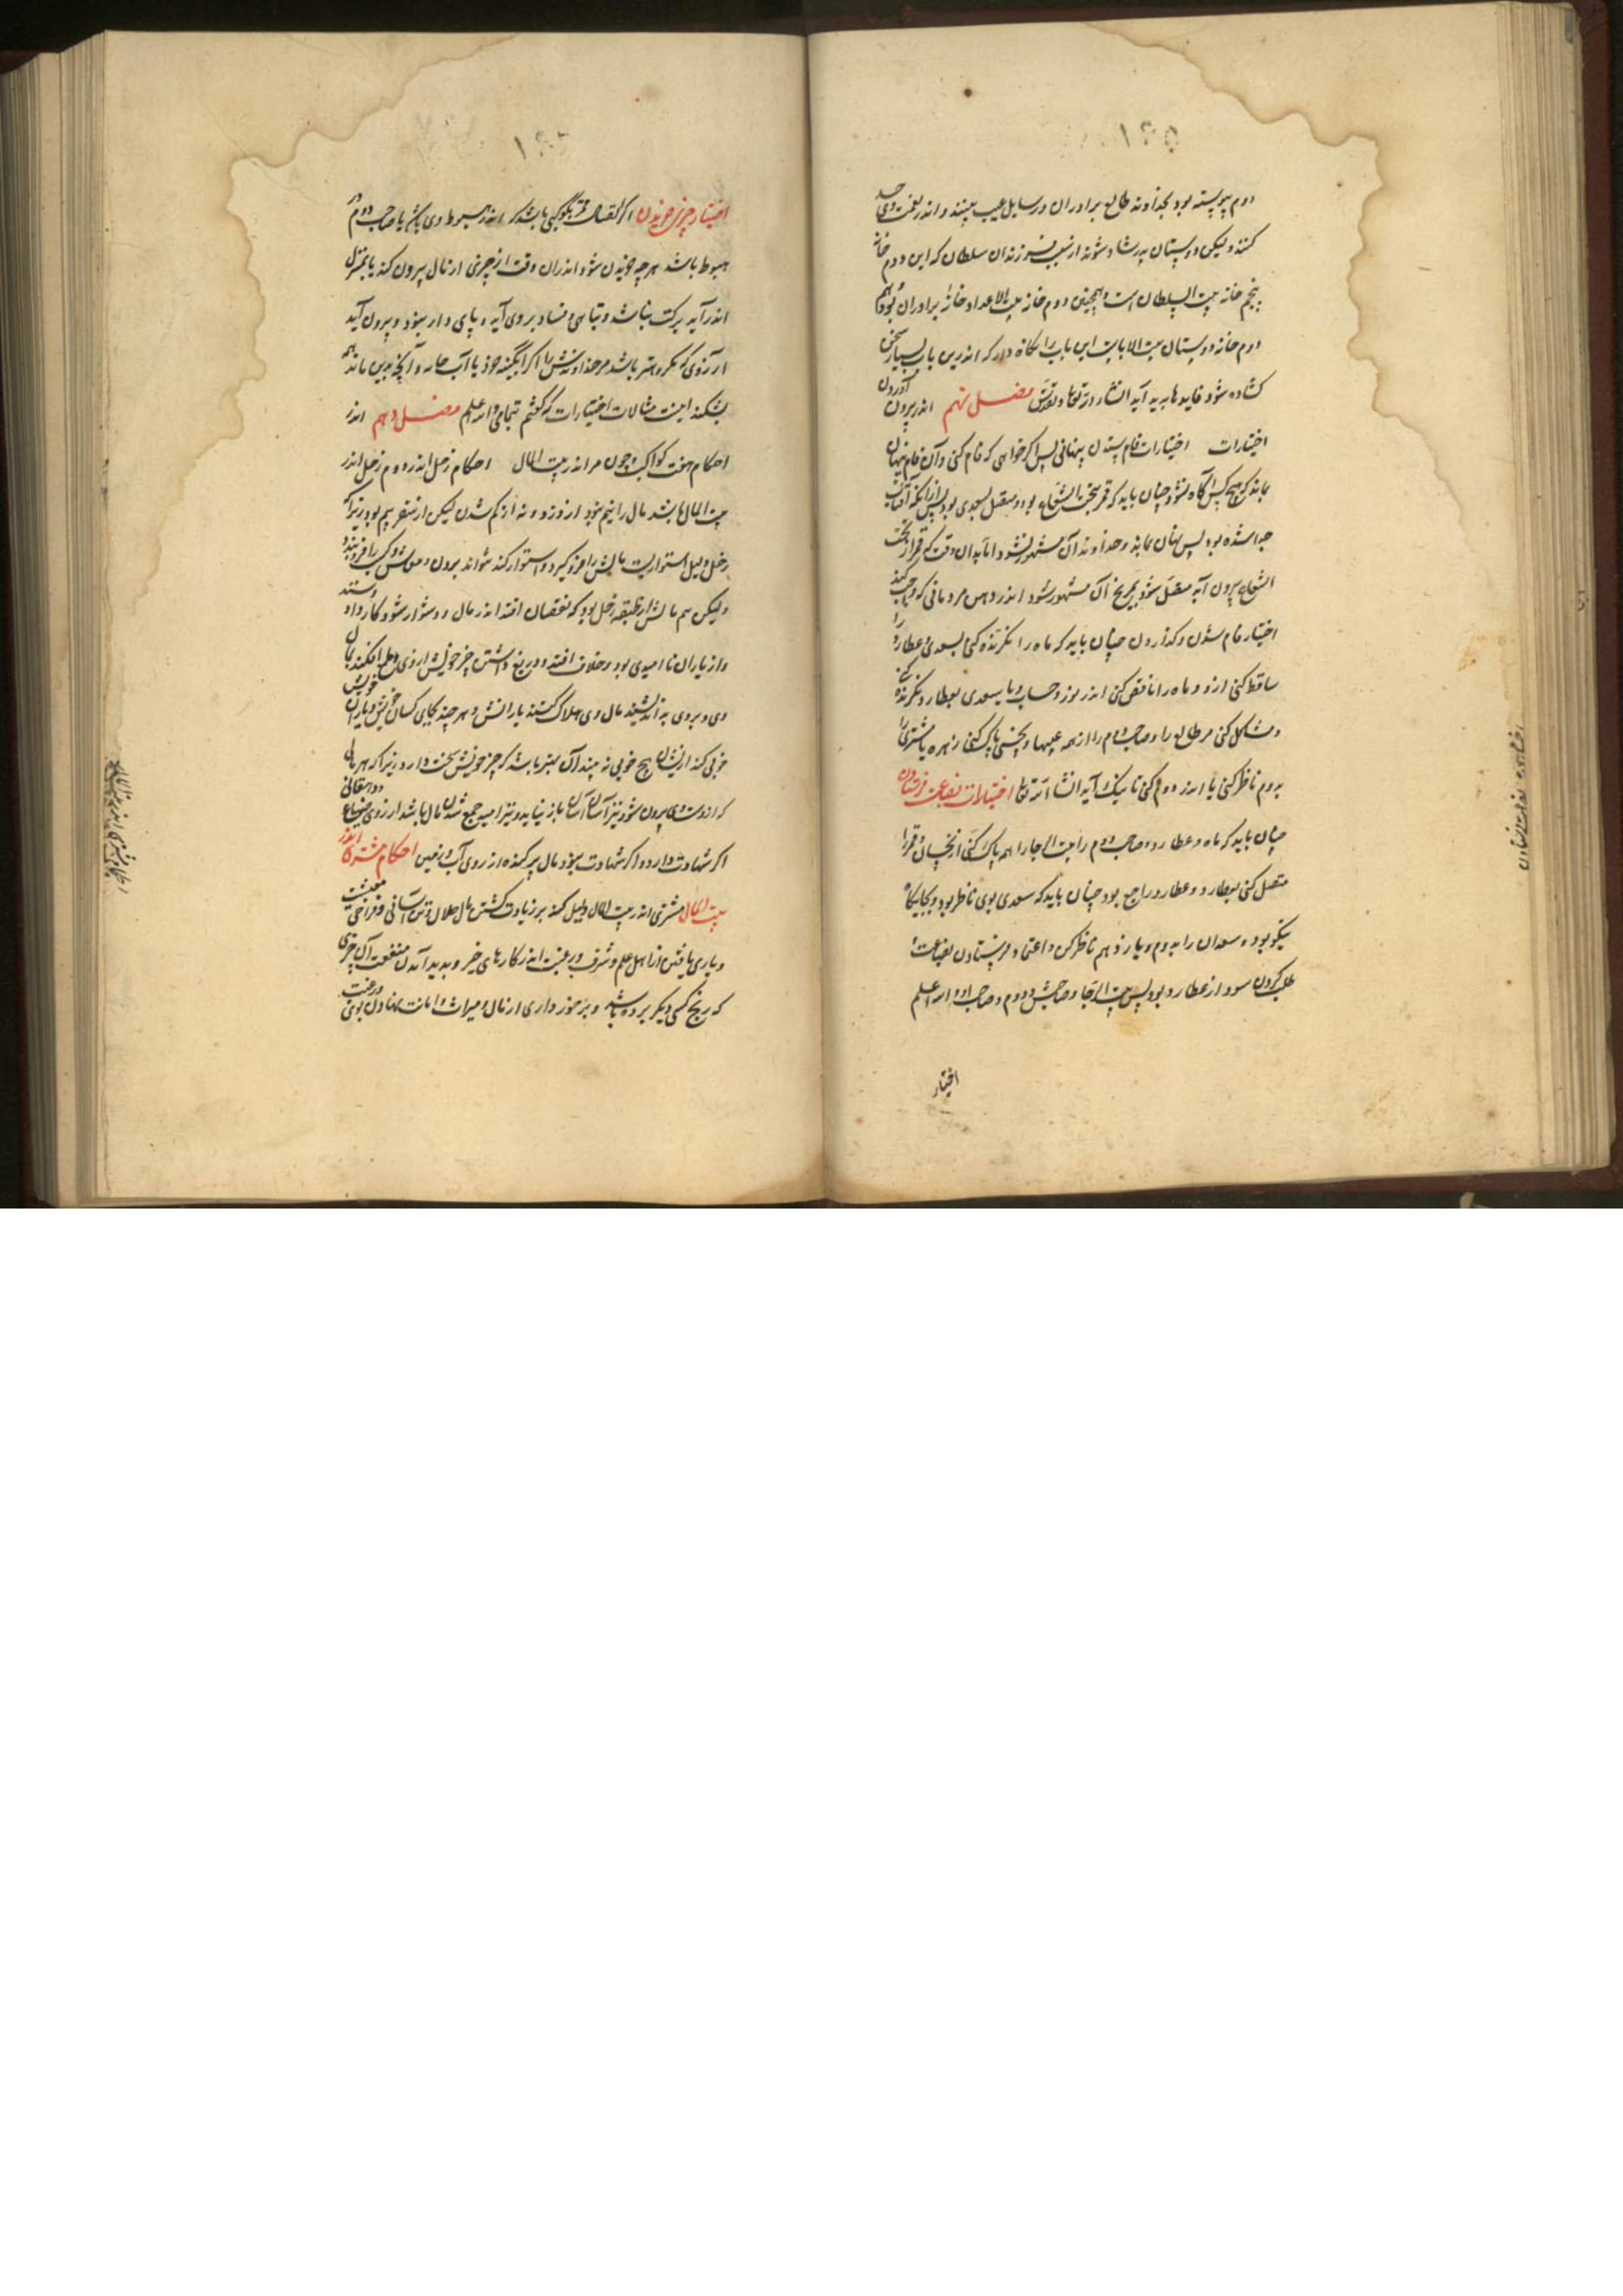 ۱۴۵
دوم پیوسته بود بخداوند طالع برادران در سایل عیب بینند و اندر نعمت وی حسد
کنند ولیکن دوستان پدر شاد شوند از سبب فرزندان سلطان که این دوم خانه
پنجم خانه بیت السلطان است و همچنین دوم خانه بیت الاعداد خانه برادران بود و هم
دوم خانه دوستان بیت الابا پس این باب را نگاه دار که اندرین باب بسیار سخن
کشاده شود و فایدها پدید آید انشاء الله تعالی فصل نهم اندر بیرون آوردن
اختیارات اختیارات فام ستدن پنهانی پس اگر خواهی که فام کنی و آن فام پنهان
بماند که هیچ کس آگاه نشود چنان باید که قمر تحت الشعاع بود و متصل بسعدی بود پس از آنکه از آفتاب
جدا شده بود پس پنهان بماند و خداوند آن مشهور نشود اما بدان وقت که قمر از تحت
الشعاع بیرون آید متصل شود بمریخ آن مشهور شود اندر دهن مردمانی که
اختیار فام ستدن و کذاردن چنان باید که ماه را نگرنده کنی بسعدی و عطارد را
ساقط کنی ازو و ماه را ناقص کنی اندر نور و حساب و با سعدی بعطارد نگرنده کنی
و مشاکل کنی مر طالع را و صاحب دوم را از همه عیبها و نحسی پاک کنی زهره یا مشتری را
بدوم ناظر کنی یا اندر دوم کنی تا نیک آید انشاء الله تعالی اختیارات بضاعت فرستادن
چنان باید که ماه و عطارد و صاحب دوم را بیت الرجا را هم پاک کنی از نحسان و قمر را
متصل کنی بعطارد و عطارد راجع بود چنان باید که سعدی بوی ناظر بود و بجایگاه
نیکو بود و سعدان را بدوم و یازدهم ناظر کن و اعتماد فرستادن بضاعت
طلب کردن سود از عطارد بود پس بیت الرجا و صاحبش و دوم و صاحب او والله اعلم
اختیار
اختیار چیزی خریدن اگر اتصال قمر بکوکبی باشد که اندر هبوط وی باشد یا صاحب دوم در
هبوط باشد هرچه خریدن شود اندران وقت از چیزی ار مال بیرون کند یا بمنزل
اندر آید برکت نباشد و تباهی و فساد بر وی آید و پای دار نبود و بیرون آید
بشکند اینست مثالات اختیارات که گفتم تمامی والله اعلم فصل دهم اندر
احکام هفت کواکب چون مر اندر بیت المال احکام زحل اندر دوم زحل اندر
بیت المال باشد مال را بیم بود از دزد و نه از کم شدن لیکن از سفر بیم بود زیراکه
ولیکن هم مالش از طبقه زحل بود که نقصان افتد اندر مال و دشوار شود کار داد و ستد
واز یاران نا امیدی بود و خلاف افتد و دریغ داشتن چیز خویش از وی و طمع افکندن بمال
وی و بروی بد اندیشند مال وی هلاک کنند یارانش و هر چند بجای کسان خویش و یاران خویش
خوبی کند از ایشان هیچ خوبی نه بیند آن بهتر باشد که چیز خویش سخت دارد زیراکه هر مالی
که از دست وی بیرون شود نیز آسان آسان باز نیاید و نیز امید جمع شدن مال باشد از روی ضیاع و دهقانی
اگر شهادت دارد و اگر شهادت نبود مال پراکنده از روی آب و زمین احکام مشتری اندر
بیت المال مشتری اندر بیت المال دلیل کند بر زیادت گشتن مال حلال و تن آسانی و فراخی معیشت
و یاری یافتن از اهل علم و شرف و رغبت اندر کارهای خیر و پدید آمدن منفعت آن چیزی
که رنج کسی دیگر برده باشد و برخورداری از مال و میراث و امانت نهادن بوی و رغبت